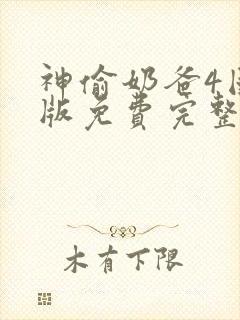 神偷奶爸4国
版免费完整
木有下限